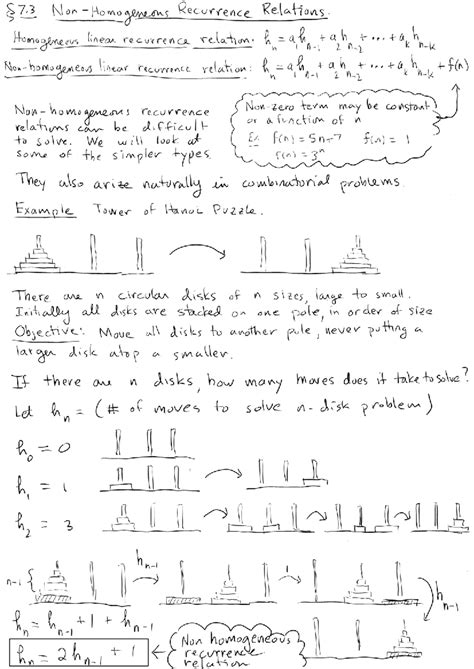 §7.3 Non-Homogeneous Recurrence Relations.
Homogeneous linear recurrence relation: hₙ = a₁hₙ₋₁ + a₂hₙ₋₂ + ... + aₖhₙ₋ₖ
Non-homogeneous linear recurrence relation: hₙ = a₁hₙ₋₁ + a₂hₙ₋₂ + ... + aₖhₙ₋ₖ + f(n)
Non-homogeneous recurrence
relations can be difficult
to solve. We will look at
some of the simpler types.
Non-zero term may be constant
or a function of n
Ex. f(n) = 5n-7 f(n) = 1
f(n) = 3ⁿ
They also arize naturally in combinatorial problems.
Example Tower of Hanoi Puzzle.
There are n circular disks of n sizes, large to small.
Initially all disks are stacked on one pole, in order of size
Objective: Move all disks to another pole, never putting a
larger disk atop a smaller.
If there are n disks, how many moves does it take to solve?
Let hₙ = (# of moves to solve n-disk problem)
h₀ = 0
h₁ = 1
h₂ = 3
n-1 { hₙ₋₁ 1 hₙ₋₁
hₙ = hₙ₋₁ + 1 + hₙ₋₁
hₙ = 2hₙ₋₁ + 1
Non homogeneous
recurrence
relation